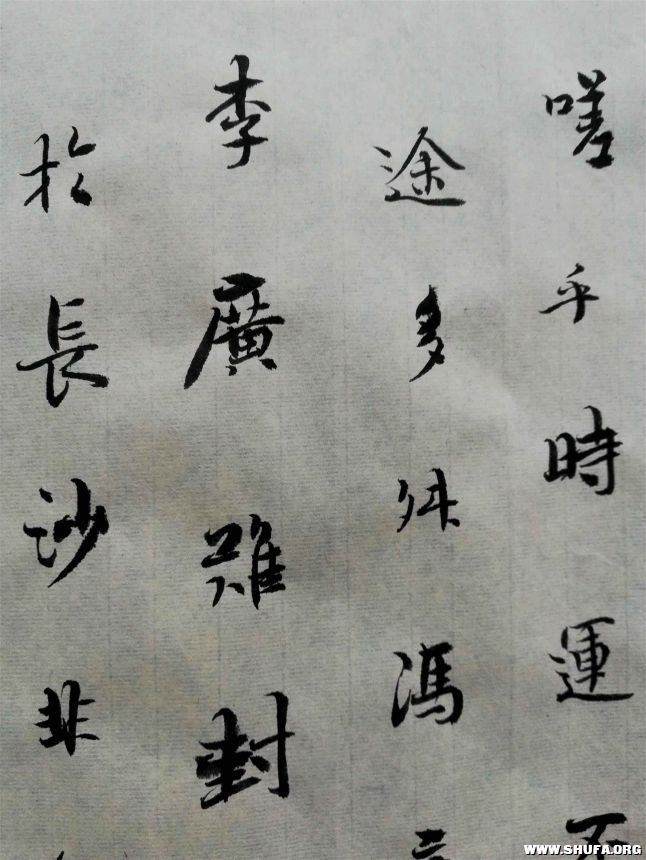 嗟乎時運不
途多舛馮
李廣難封
於長沙非
WWW.SHUFA.ORG